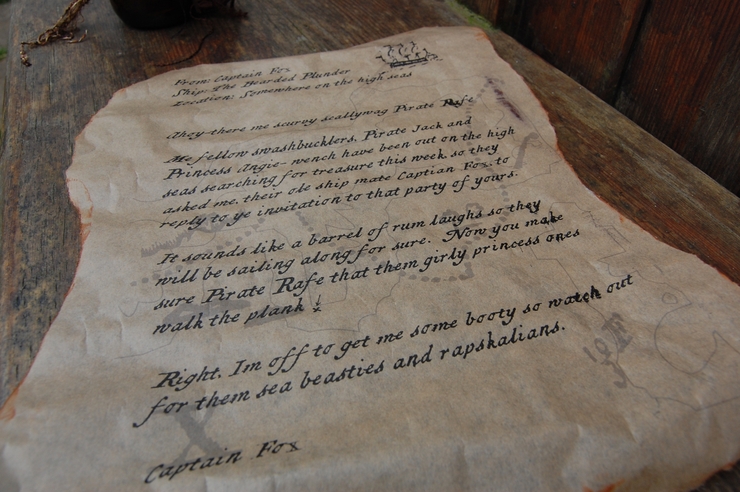 From: Captain Fox
Ship: The Bearded Plunder
Location: Somewhere on the high seas
Ahoy there me scurny seallywag Pirate Rafe
Me fellow swashbucklers, Pirate Jack and
Princess Angie- wench have been out on the high
seas searching for treasure this week so they
asked me, their ole ship mate Captian Fox, to
reply to ye invitation to that party of yours.
It sounds like a barrel of rum laughs so they
will be sailing along for sure. Now you make
sure Pirate Rafe that them girly princess ones
walk the plank !
Right. Im off to get me some booty so watch out
for them sea beasties and rapskalians.
Captain Fox